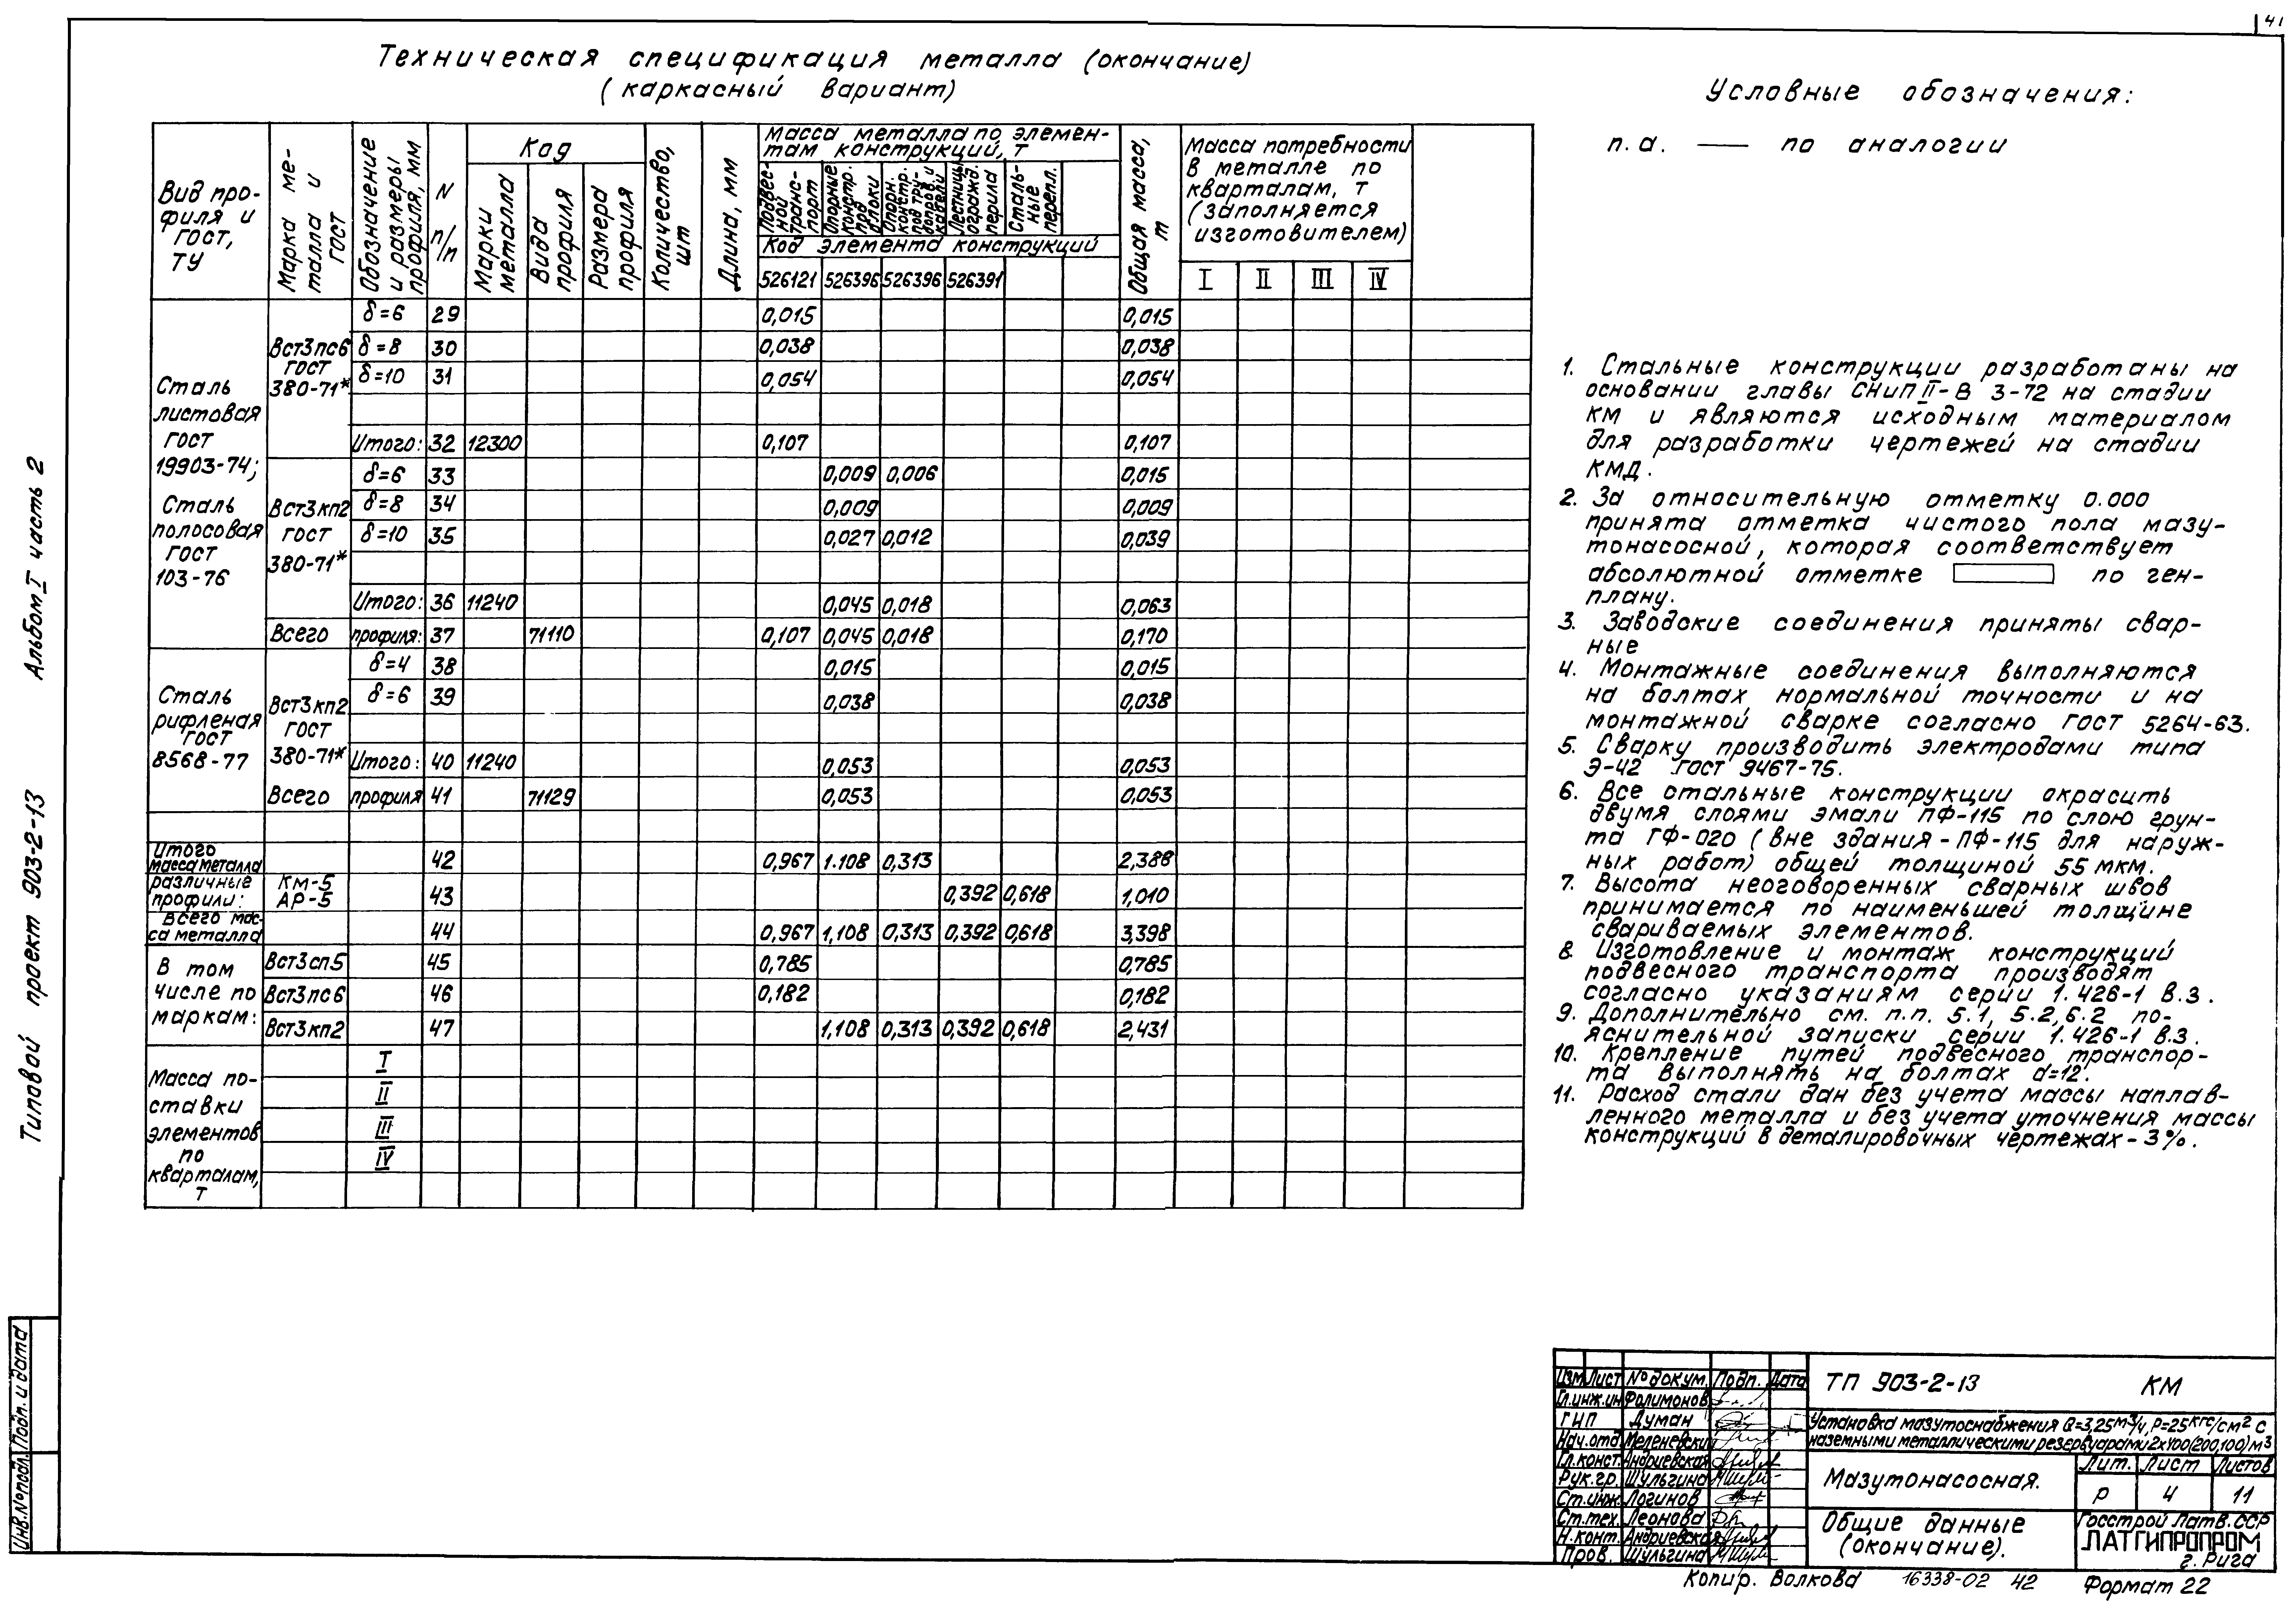 41
Техническая спецификация металла (окончание)
(каркасный вариант)
Условные обозначения:
п.а. — по аналогии
Вид профиля и ГОСТ, ТУ
Марка металла и ГОСТ
Обозначение и размеры профиля, мм
N п/п
Код
Марки металла
Вида профиля
Размера профиля
Количество, шт
Длина, мм
Масса металла по элемен-
там конструкций, т
Подвес-ной транс-порт
Опорные констр. под блоки
Опорн. констр. под тру-бопров. и кабели
Лестницы огражд. перила
Сталь-ные перепл.
Код элемента конструкций
526121 526396 526396 526391
Общая масса, т
Масса потребности
в металле по
кварталам, т
(заполняется
изготовителем)
I II III IV
Сталь
листовая
ГОСТ
19903-74;
Сталь
полосовая
ГОСТ
103-76
Вст3пс6
ГОСТ
380-71*
δ=6 29 0,015 0,015
δ=8 30 0,038 0,038
δ=10 31 0,054 0,054
Итого: 32 12300 0,107 0,107
Вст3кп2
ГОСТ
380-71*
δ=6 33 0,009 0,006 0,015
δ=8 34 0,009 0,009
δ=10 35 0,027 0,012 0,039
Итого: 36 11240 0,045 0,018 0,063
Всего профиля: 37 71110 0,107 0,045 0,018 0,170
Сталь
рифленая
ГОСТ
8568-77
Вст3кп2
ГОСТ
380-71*
δ=4 38 0,015 0,015
δ=6 39 0,038 0,038
Итого: 40 11240 0,053 0,053
Всего профиля 41 71129 0,053 0,053
Итого
масса металла 42 0,967 1.108 0,313 2,388
различные
профили: КМ-5
АР-5 43 0,392 0,618 1,010
Всего мас-
са металла 44 0,967 1,108 0,313 0,392 0,618 3,398
В том
числе по
маркам:
Вст3сп5 45 0,785 0,785
Вст3пс6 46 0,182 0,182
Вст3кп2 47 1,108 0,313 0,392 0,618 2,431
Масса по-
ставки
элементов
по
кварталам,
т
I
II
III
IV
1. Стальные конструкции разработаны на
основании главы СНиП II-В 3-72 на стадии
КМ и являются исходным материалом
для разработки чертежей на стадии
КМД.
2. За относительную отметку 0.000
принята отметка чистого пола мазу-
тонасосной, которая соответствует
абсолютной отметке по ген-
плану.
3. Заводские соединения приняты свар-
ные
4. Монтажные соединения выполняются
на болтах нормальной точности и на
монтажной сварке согласно ГОСТ 5264-63.
5. Сварку производить электродами типа
Э-42 ГОСТ 9467-75.
6. Все стальные конструкции окрасить
двумя слоями эмали ПФ-115 по слою грун-
та ГФ-020 (вне здания-ПФ-115 для наруж-
ных работ) общей толщиной 55 мкм.
7. Высота неоговоренных сварных швов
принимается по наименьшей толщине
свариваемых элементов.
8. Изготовление и монтаж конструкций
подвесного транспорта производят
согласно указаниям серии 1.426-1 в.3.
9. Дополнительно см. п.п. 5.1, 5.2, 6.2 по-
яснительной записки серии 1.426-1 в.3.
10. Крепление путей подвесного транспор-
та выполнять на болтах d=12.
11. Расход стали дан без учета массы наплав-
ленного металла и без учета уточнения массы
конструкций в деталировочных чертежах-3%.
Типовой проект 903-2-13 Альбом I часть 2
Инв.№подл. Подп. и дата
Изм Лист №докум. Подп. Дата
Гл.инж.ин Филимонов
ГИП Думан
Нач.отд Меленевский
Гл.конст. Андриевская
Рук.гр. Шульгина
Ст.инж. Логинов
Ст.тех. Леонова
Н.конт. Андриевская
Пров. Шульгина
ТП 903-2-13 КМ
Установка мазутоснабжения Q=3,25м³/ч, Р=25кгс/см² с
наземными металлическими резервуарами 2х400(200,100)м³
Мазутонасосная.
Лит. Лист Листов
Р 4 11
Общие данные
(окончание).
Госстрой Латв.ССР
ЛАТГИПРОПРОМ
г. Рига
Копир. Волкова 16338-02 42 Формат 22